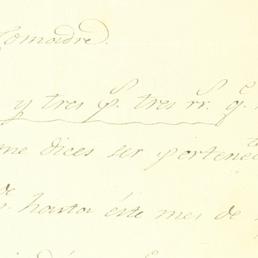 Comadre.
y tres p. tres rr. q.
me dices ser pertenec
hasta éste mes de